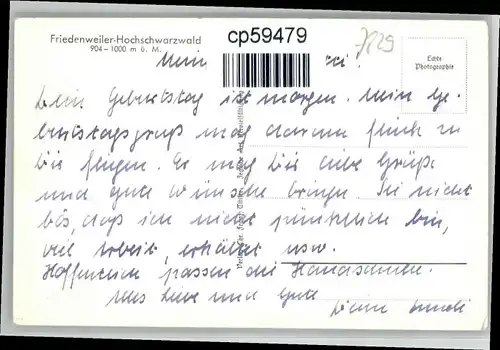 Friedenweiler-Hochschwarzwald
904-1000 m ü. M.
cp59479
7829
Echte
Photographie
Mein
Dein Geburtstag ist morgen. Mein Ge-
burtstagsgruß mag darum flink zu
Dir fliegen. Er mag Dir liebe Grüße
und gute Wünsche bringen. Sei nicht
bös, daß ich nicht pünktlich bin,
viel Arbeit, erkältet usw.
Hoffentlich passen die Handschuhe.
Alles Liebe und Gute
Deine